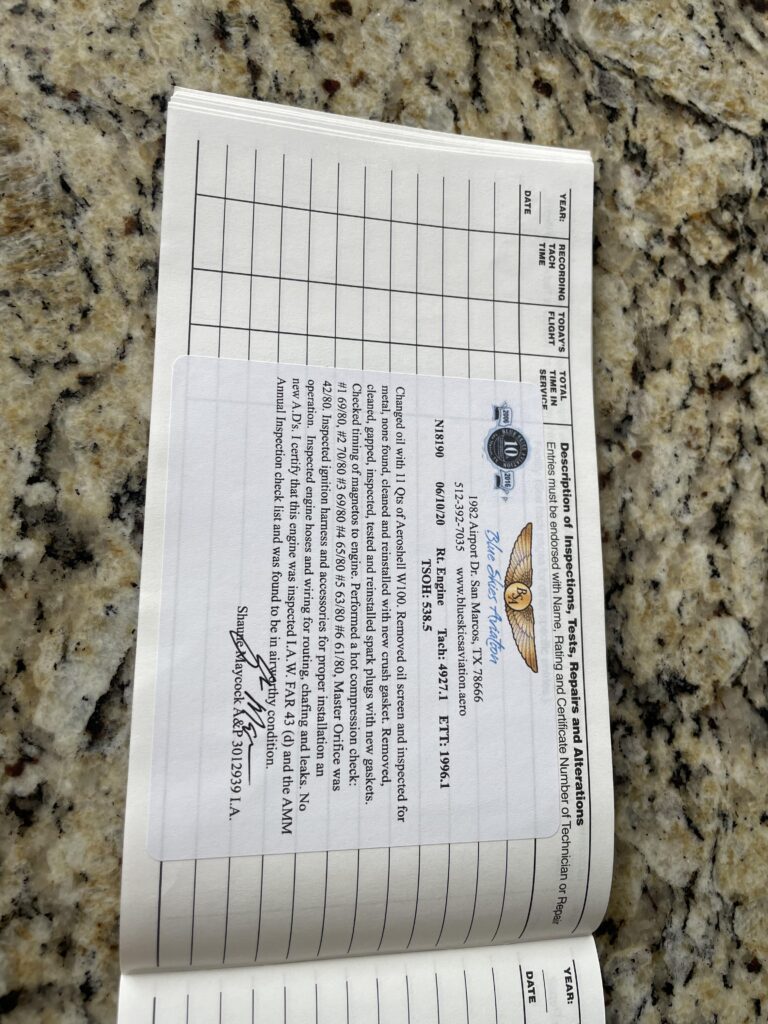 YEAR:
DATE
RECORDING
TACH
TIME
TODAY'S
FLIGHT
TOTAL
TIME IN
SERVICE
Description of Inspections, Tests, Repairs and Alterations
Entries must be endorsed with Name, Rating and Certificate Number of Technician or Repair
2006
10
2016
BSA
Blue Skies Aviation
1982 Airport Dr. San Marcos, TX 78666
512-392-7035 www.blueskiesaviation.aero
N18190 06/10/20 Rt. Engine Tach: 4927.1 ETT: 1996.1
TSOH: 538.5
Changed oil with 11 Qts of Aeroshell W100. Removed oil screen and inspected for
metal, none found, cleaned and reinstalled with new crush gasket. Removed,
cleaned, gapped, inspected, tested and reinstalled spark plugs with new gaskets.
Checked timing of magnetos to engine. Performed a hot compression check:
#1 69/80, #2 70/80 #3 69/80 #4 65/80 #5 63/80 #6 61/80, Master Orifice was
42/80. Inspected ignition harness and accessories for proper installation an
operation. Inspected engine hoses and wiring for routing, chafing and leaks. No
new A.D's. I certify that this engine was inspected I.A.W. FAR 43 (d) and the AMM
Annual Inspection check list and was found to be in airworthy condition.
Shaune Maycock A&P 3012939 I.A.
YEAR:
DATE